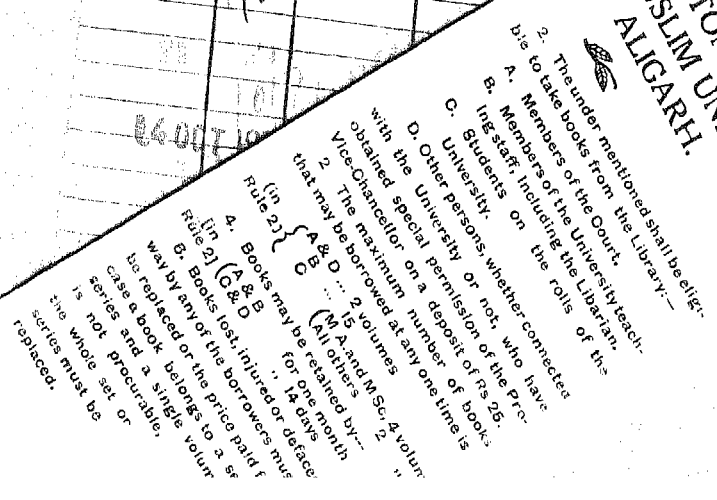 SLIM UN
ALIGARH.
2. The under mentioned shall be eligi-
ble to take books from the Library:—
A. Members of the Court.
B. Members of the University teach-
ing staff, including the Libarian.
C. Students on the rolls of the
University.
D. Other persons, whether connected
with the University or not, who have
obtained special permission of the Pro-
Vice-Chancellor on a deposit of Rs 25.
2 The maximum number of books
that may be borrowed at any one time is
(in
Rule 2] { A & D ... 2 volumes
B ... 15 "
C (M A, and M Sc, 4 volum
(All others 2 "
4. Books may be retained by—
[in (A & B for one month
Rule 2] (C & D " 14 days
6. Books lost, injured or deface
way by any of the borrowers mus
be replaced or the price paid f
case a book belongs to a se
series and a single volum
is not procurable,
the whole set or
series must be
replaced.
OCT